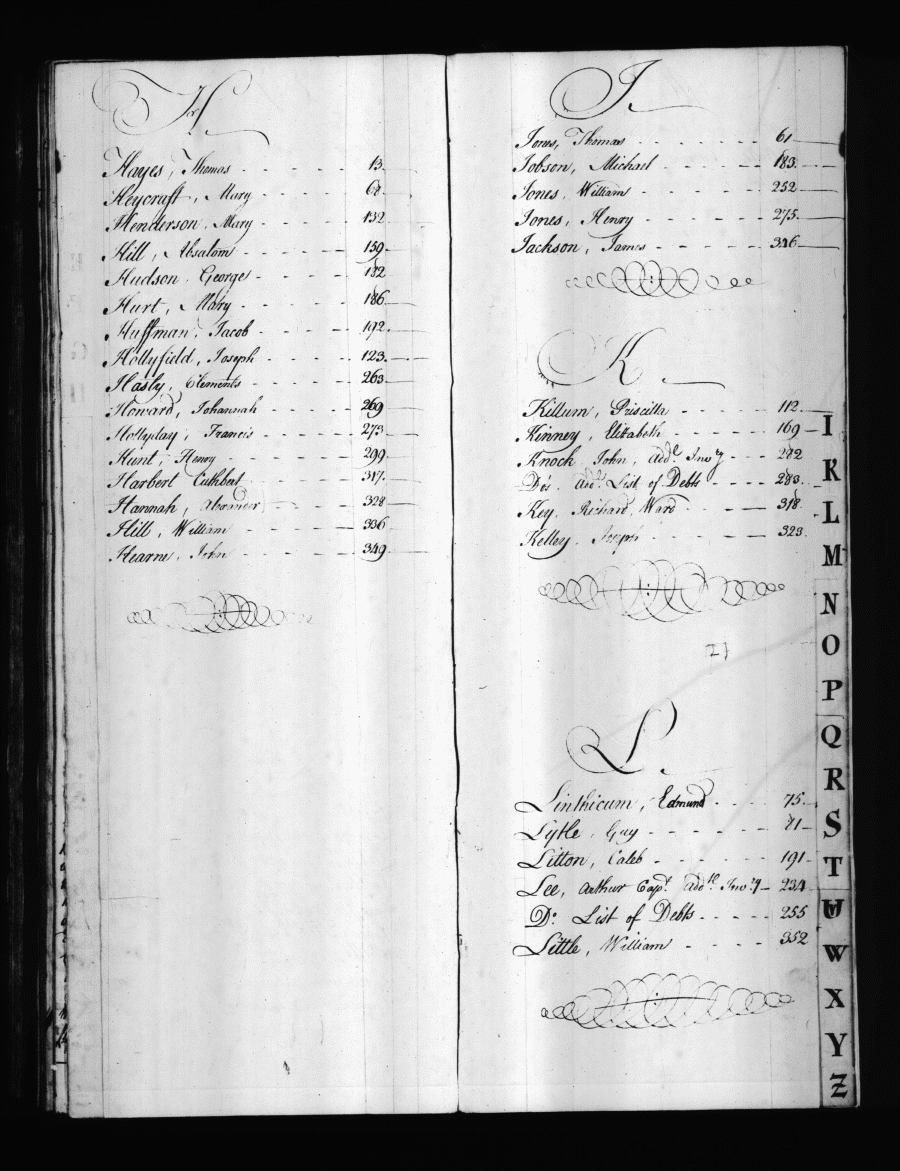 H
Hayes, Thomas - - - - - 13.
Heycraft, Mary - - - - 68.
Henderson, Mary - - - - 132
Hill, Absalom - - - - 159
Hudson, George - - - - 182
Hurt, Mary - - - - 186
Huffman, Jacob - - - - 192
Hollyfield, Joseph - - - - 123.
Hasly, Clements - - - - 263
Howard, Johannah - - - - 269
Hollyday, Francis - - - - 273
Hunt, Henry - - - - 299
Harbert Cuthbert - - - - 317.
Hannah, - - - - 328
Hill, William - - - - 336
Hearne, John - - - - 349
I
Jones, Thomas - - - - 61
Jobson, Michael - - - - 183.
Jones, William - - - - 252
Jones, Henry - - - - 275.
Jackson, James - - - - 346
K
Killum, Priscilla - - - - 112
Kinney, Elizabeth - - - - 169
Knock John, Addl. Invy - - 282
Do's. Add. List of Debts - - - 283.
Key, Richard Ward - - - - 318
Kelley, Joseph - - - - 323
27
L
Linthicum, Edmund - - - - 75.
Lytle, Guy - - - - 81
Litton, Caleb - - - - 191
Lee, Arthur Capt. Addl. Invy - 234
Do. List of Debts - - - - 255
Little, William - - - - 352
I
K
L
M
N
O
P
Q
R
S
T
U
W
X
Y
Z